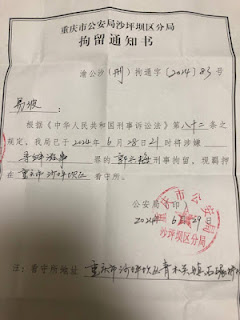 重庆市公安局沙坪坝区分局
拘留通知书
渝公沙(刑)拘通字[2024]83号
根据《中华人民共和国刑事诉讼法》第八十二条之
规定，我局已于2024年6月28日21时将涉嫌
寻衅滋事罪的 刑事拘留，现羁押
在重庆市沙坪坝区看守所。
公安局(印)
2024年6月29
重庆市公安局
沙坪坝区分局
注：看守所地址：重庆市沙坪坝区青木关镇